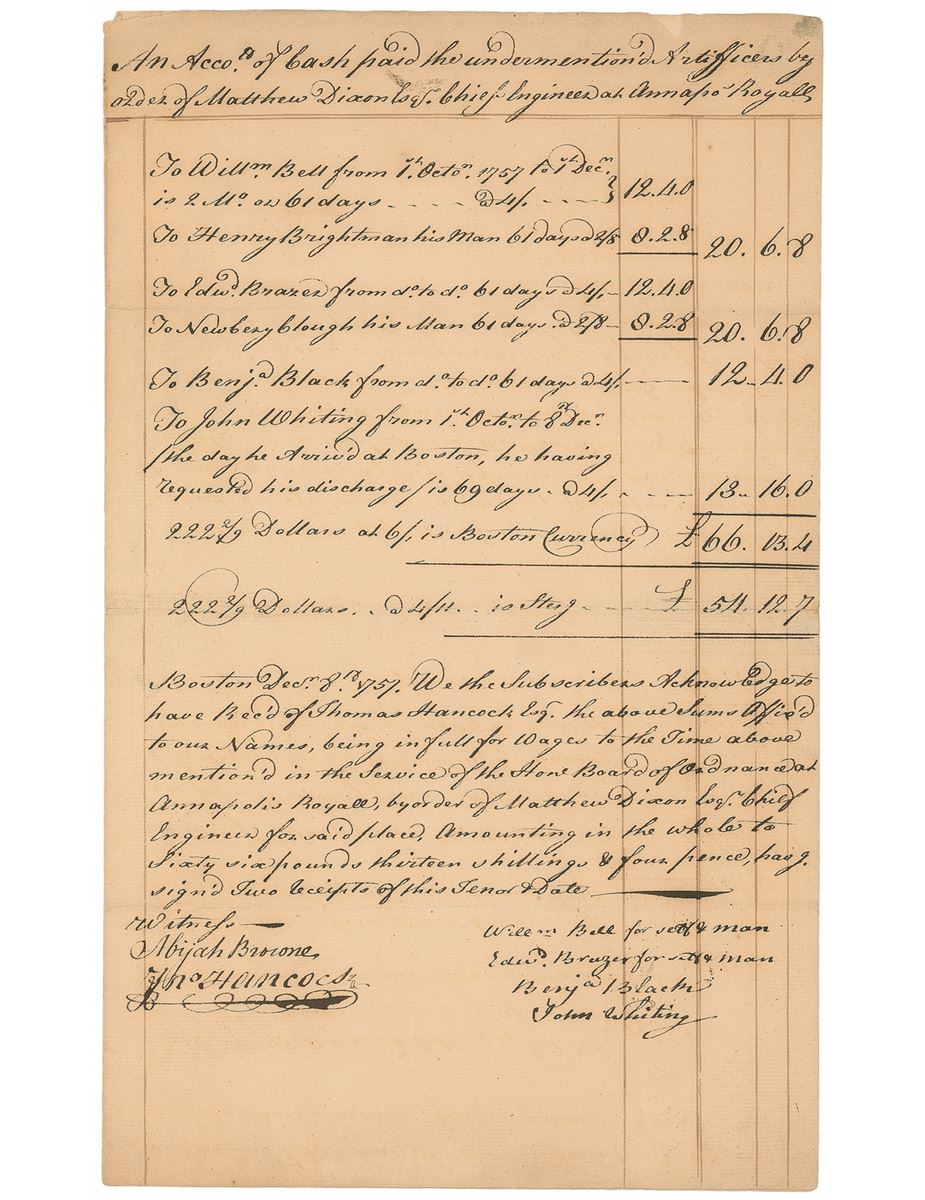 An Acco.t of Cash paid the undermention'd Artificers by
order of Matthew Dixon Esqr. Chief Engineer at Annapo.s Royall,
To Will.m Bell from 1.st Octo.r 1757 to 1.st Dec.r
is 2 Mo. or 61 days - - - - @ 4/. - - - } 12.4.0
To Henry Brightman his Man 61 days @ 2/8 8.2.8 20. 6.8
To Edw.d Brazer from do. to do. 61 days @ 4/.- 12.4.0
To Newbery Clough his Man 61 days. @ 2/8- 8.2.8 20. 6.8
To Benj.a Black from do. to do. 61 days @ 4/. - - - 12.. 4.0
To John Whiting from 1.st Octo.r to 8.th Dec.r
/the day he Arriv'd at Boston, he having
requested his discharge/ is 69 days - @ 4/. - - - 13.. 16.0
222 2/9 Dollars at 6/, is Boston Currency £ 66. 13.4
222 2/9 Dollars. - @ 4/11 - - is Sterg - - - £ 54. 12.7
Boston Decr. 8.th 1757. We the Subscribers Acknowledge to
have Rec'd of Thomas Hancock Esq. the above Sums Affix'd
to our Names, being in full for Wages to the Time above
mention'd in the Service of the Hone. Board of Ordnance at
Annapolis Royall, by order of Matthew Dixon Esqr. Chief
Engineer for said place, Amounting in the whole to
Sixty six pounds thirteen shillings & four pence, havg.
signd Two receipts of this Tenor & Date
Witness
Abijah Browne
Jno Hancock
Willm Bell for self & man
Edwd. Brazer for self & man
Benja Black
John Whiting